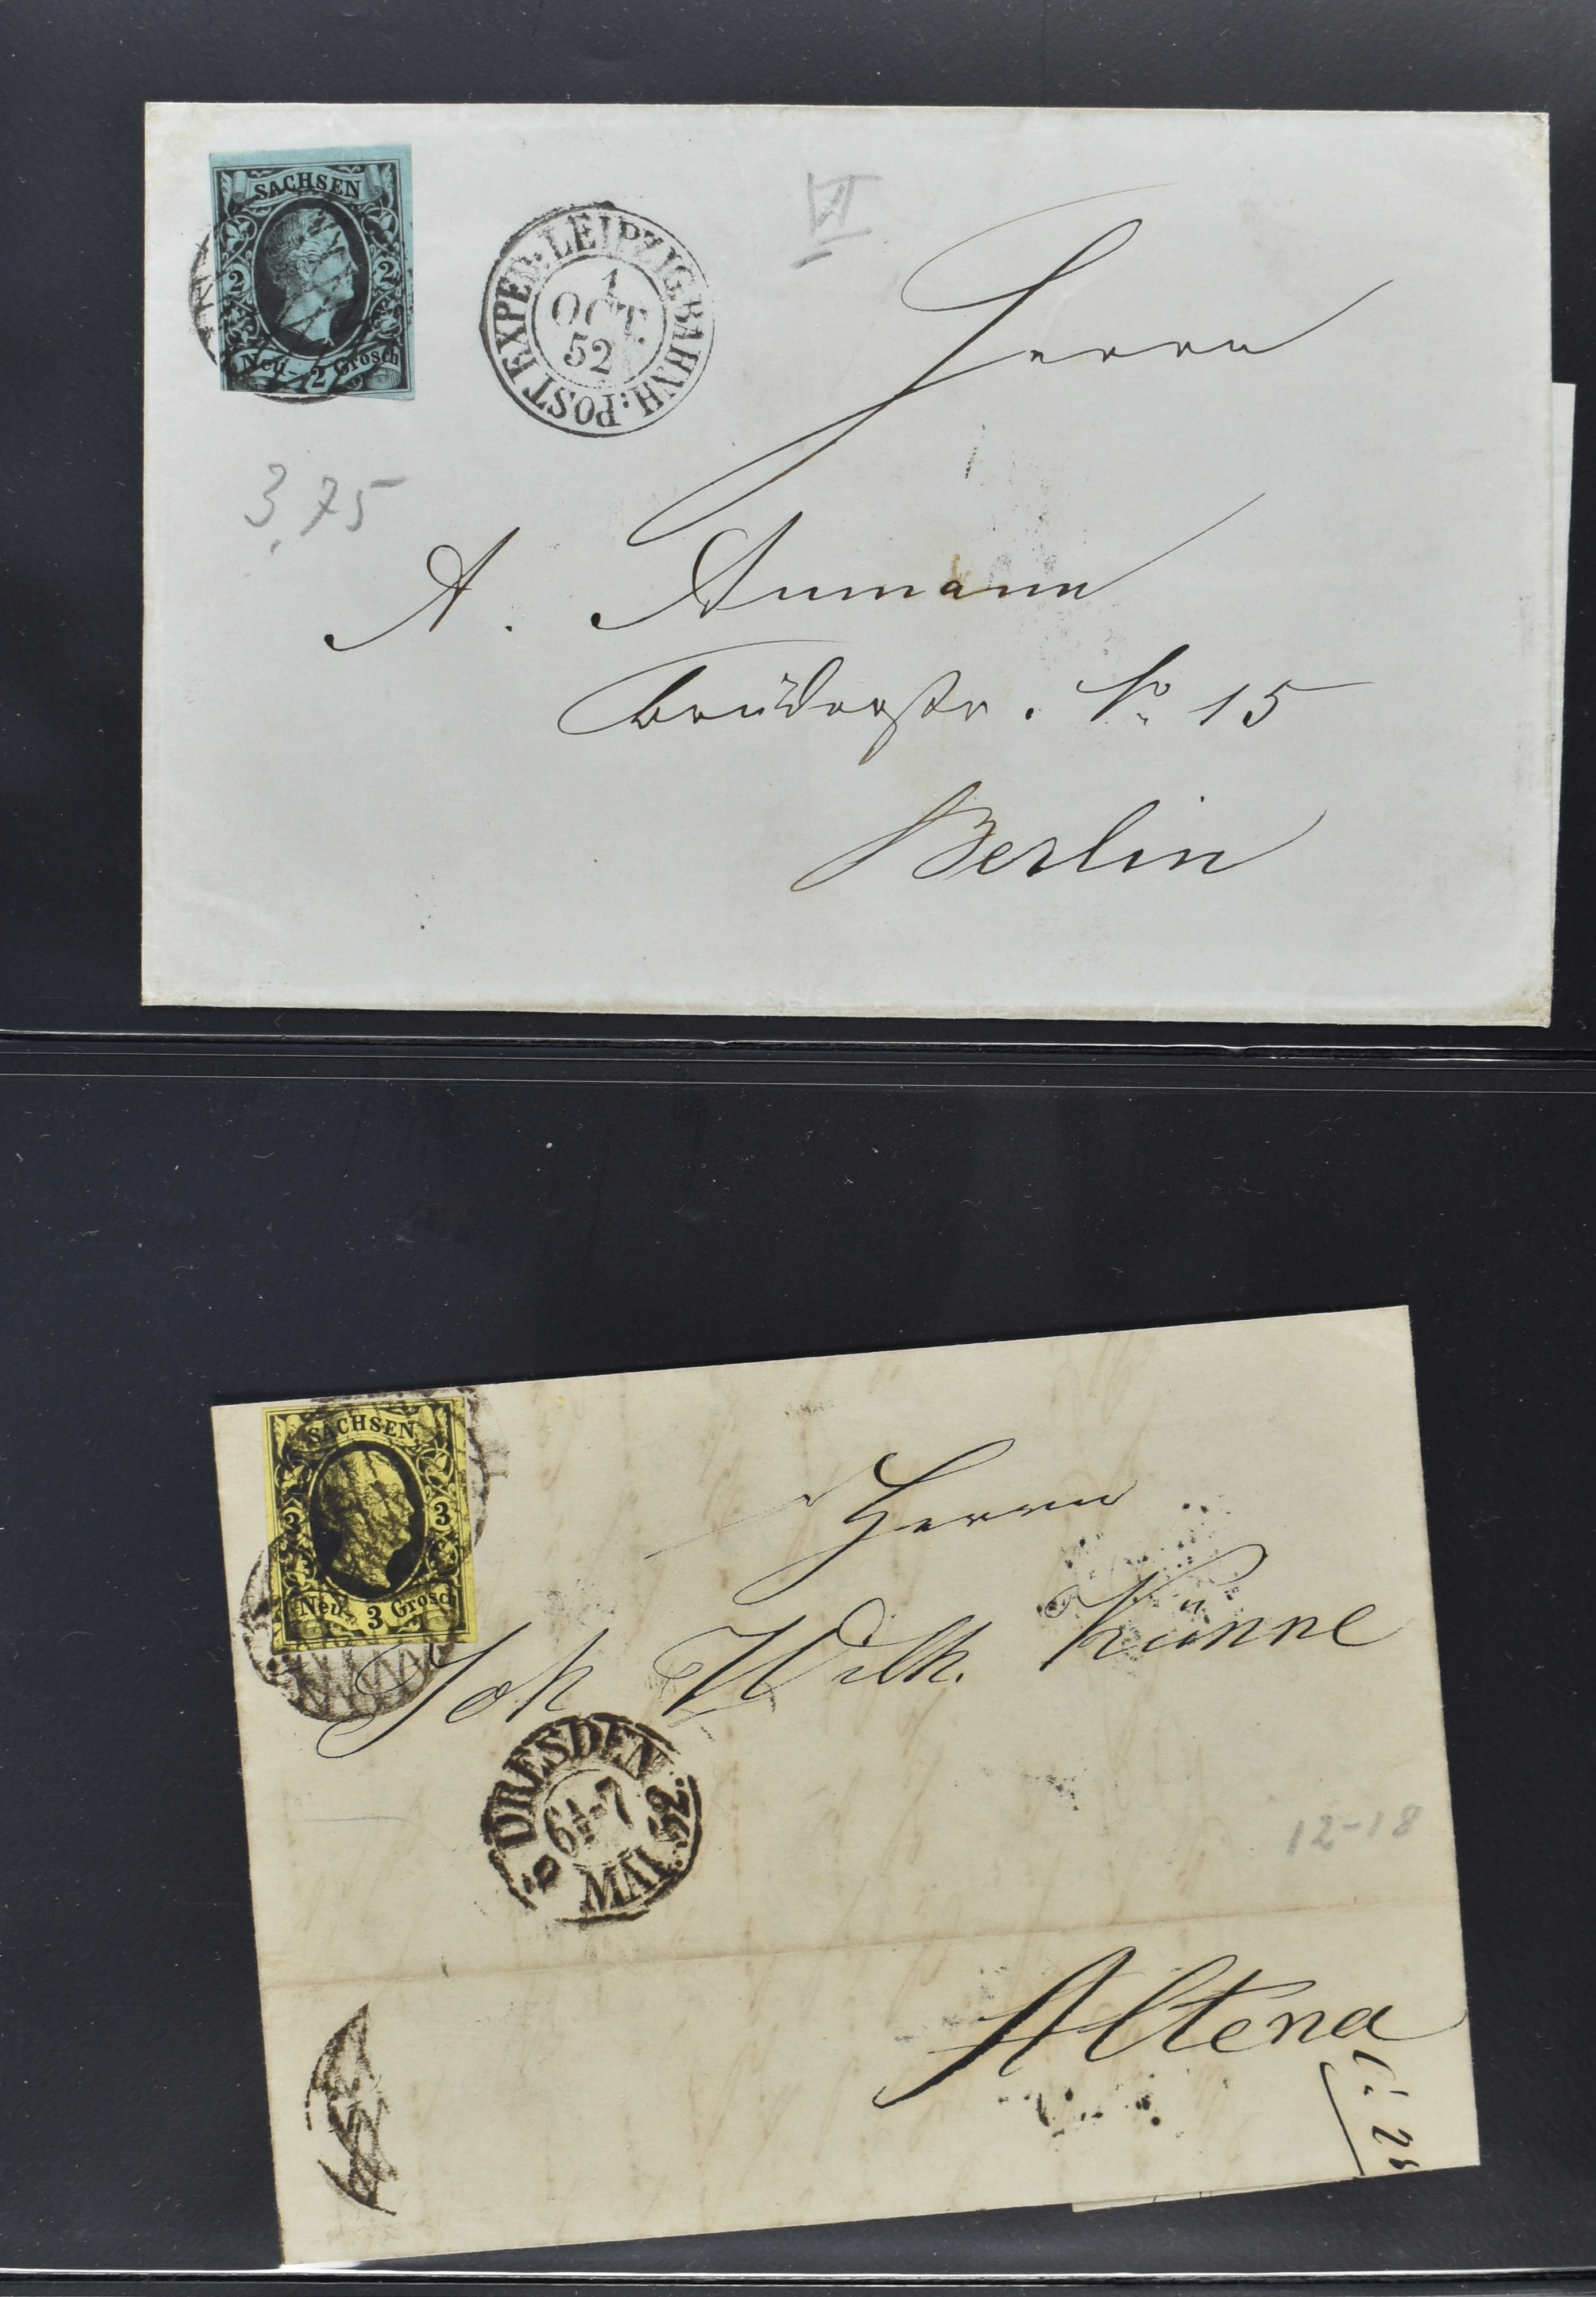 SACHSEN
2 2
Neu- 2 Grosch
POST EXPED: LEIPZIG.BAHNH:
1
OCT.
52
VI
3,75
Herrn
A. Aumann
Brüderstr. No 15
Berlin
SACHSEN
3 3
Neu- 3 Grosch
Herrn
Joh Wilh. Künne
DRESDEN
6½-7
MAI. 52.
12-18
Altena